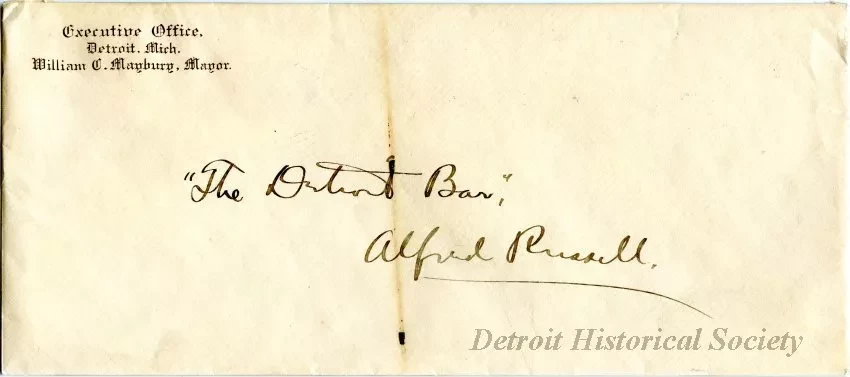 Executive Office,
Detroit, Mich.
William C. Maybury, Mayor.
"The Detroit Bar",
Alfred Russell.
Detroit Historical Society